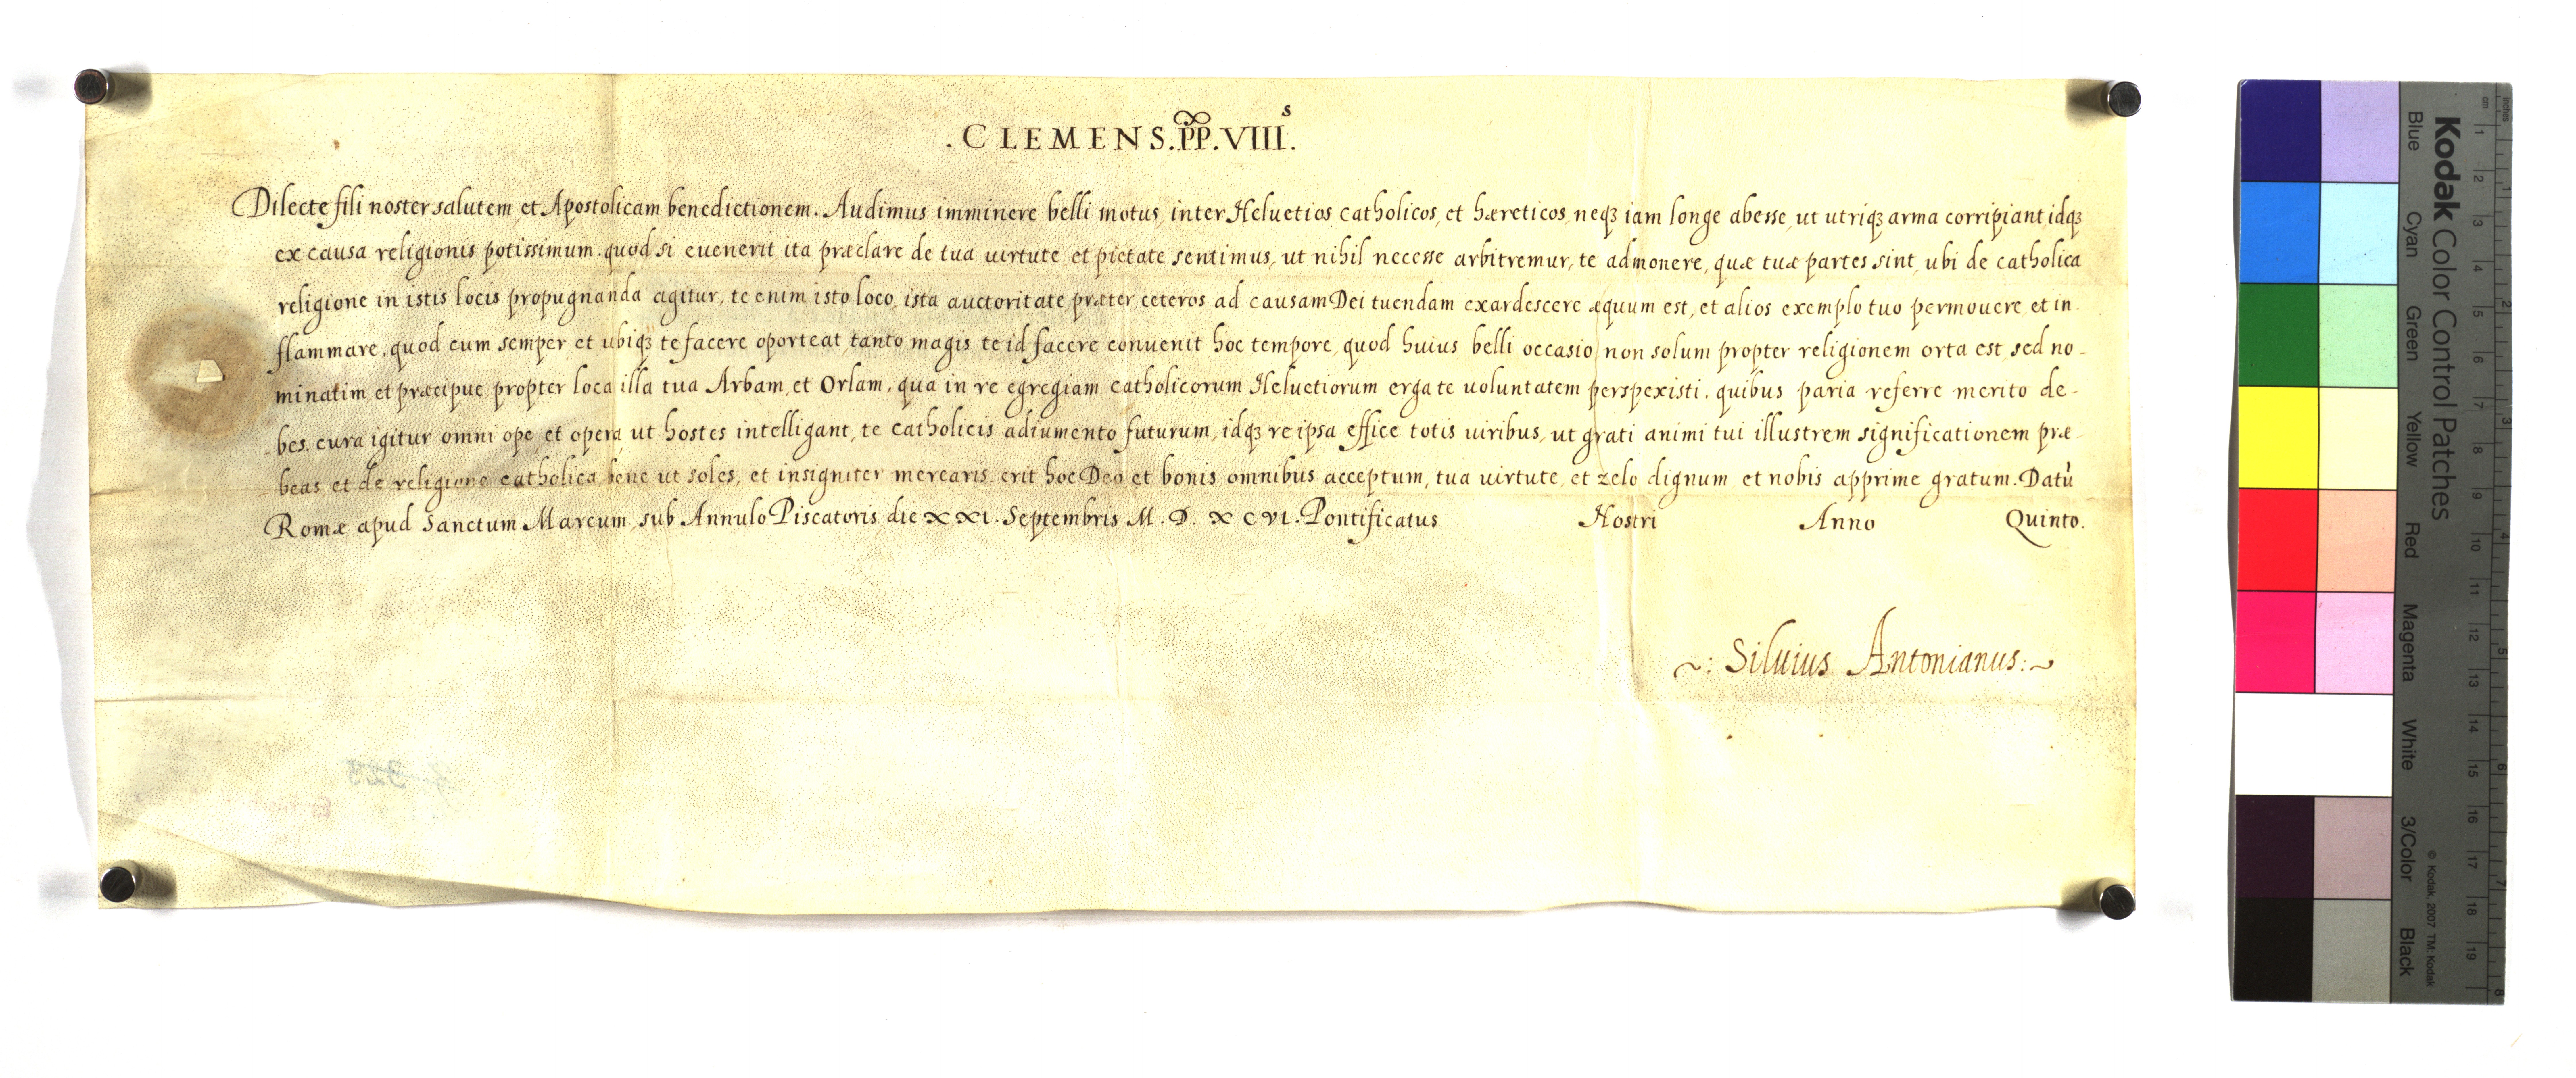 .CLEMENS.PP.VIIIˢ.
Dilecte fili noster salutem et Apostolicam benedictionem. Audimus imminere belli motus, inter Heluetios catholicos, et hæreticos, neqꝫ iam longe abesse, ut utriqꝫ arma corripiant, idqꝫ
ex causa religionis potissimum. quod si euenerit ita præclare de tua uirtute, et pietate sentimus, ut nihil necesse arbitremur, te admonere, quæ tuæ partes sint, ubi de catholica
religione in istis locis propugnanda agitur, te enim isto loco, ista auctoritate præter ceteros ad causam Dei tuendam exardescere æquum est, et alios exemplo tuo permouere, et in
flammare. quod cum semper et ubiqꝫ te facere oporteat, tanto magis te id facere conuenit hoc tempore, quod huius belli occasio non solum propter religionem orta est, sed no-
minatim, et præcipue propter loca illa tua Arbam, et Orlam, qua in re egregiam catholicorum Heluetiorum erga te uoluntatem perspexisti. quibus paria referre merito de-
bes. cura igitur omni ope, et opera ut hostes intelligant, te catholicis adiumento futurum, idqꝫ reipsa effice totis uiribus, ut grati animi tui illustrem significationem præ-
beas et de religione catholica bene ut soles, et insigniter merearis. erit hoc Deo et bonis omnibus acceptum, tua uirtute, et zelo dignum et nobis apprime gratum. Datū
Romæ apud Sanctum Marcum, sub Annulo Piscatoris, die XXI. Septembris M. D. XCVI. Pontificatus Nostri Anno Quinto.
~: Siluius Antonianus :~
Kodak Color Control Patches
Blue Cyan Green Yellow Red Magenta White 3/Color Black
© Kodak, 2007 TM: Kodak
inches 1 2 3 4 5 6 7 8
cm 1 2 3 4 5 6 7 8 9 10 11 12 13 14 15 16 17 18 19